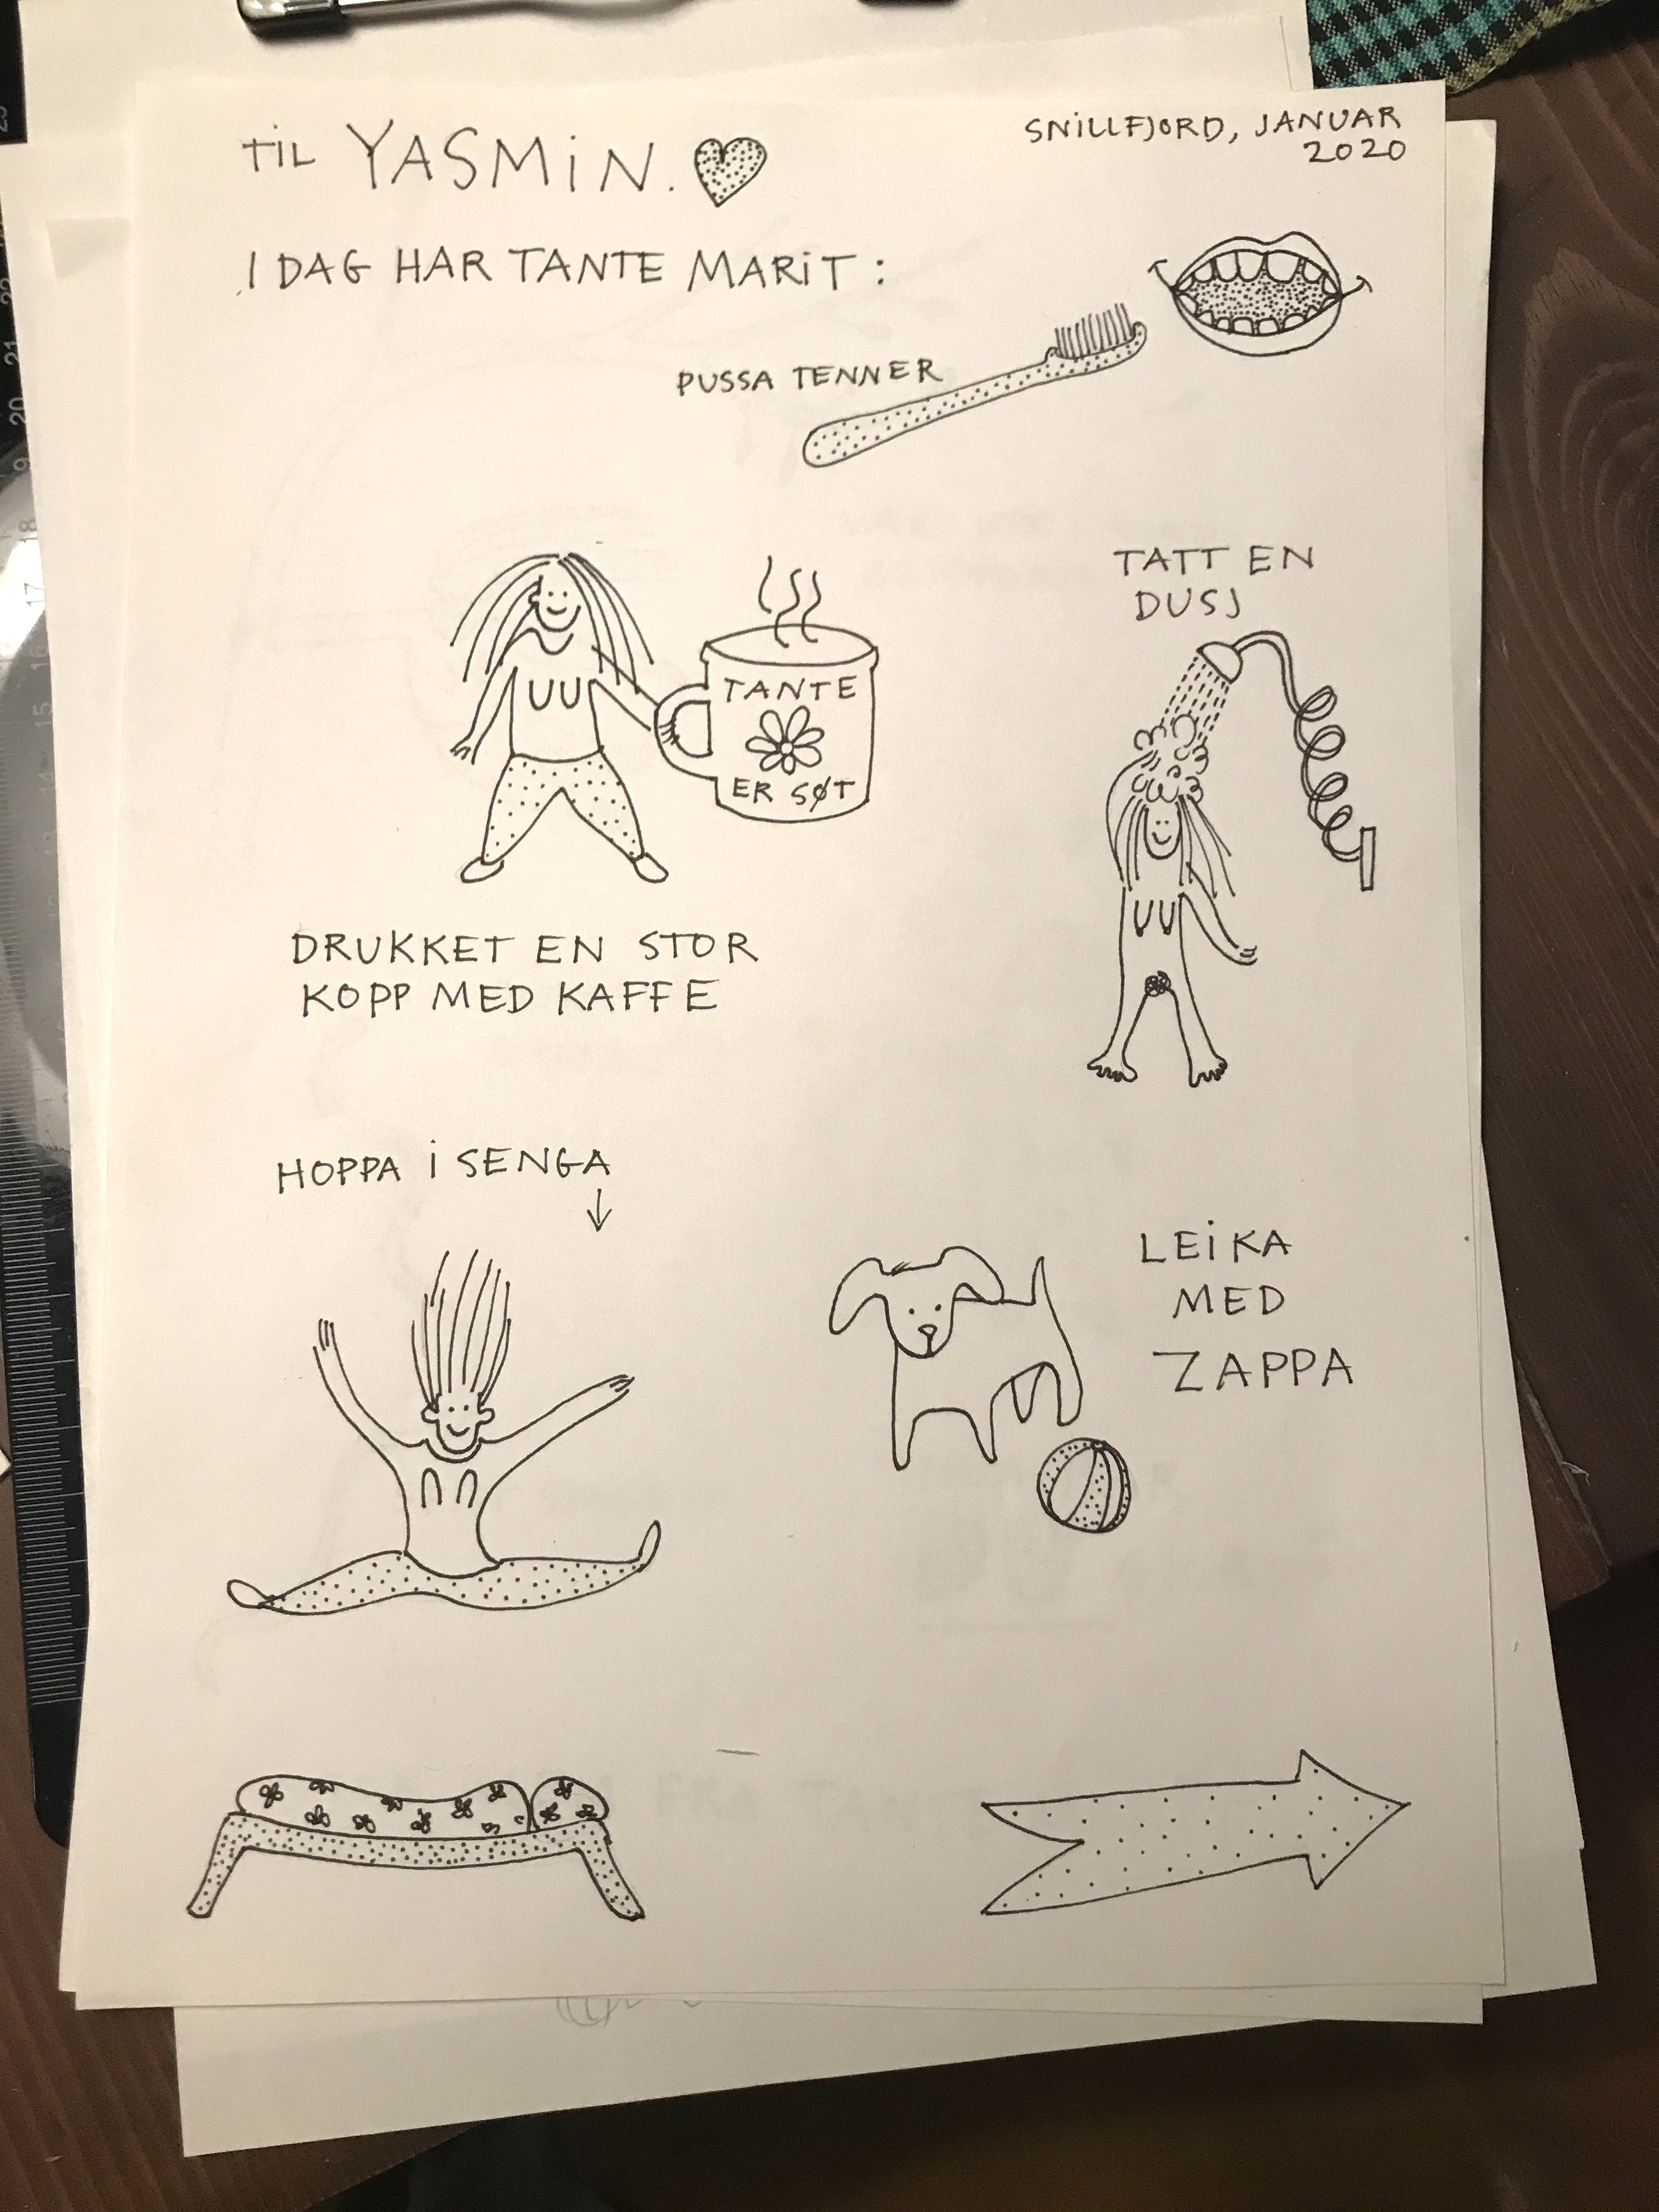 TIL YASMIN.
SNILLFJORD, JANUAR
2020
I DAG HAR TANTE MARIT :
PUSSA TENNER
TANTE
ER SØT
DRUKKET EN STOR
KOPP MED KAFFE
TATT EN
DUSJ
HOPPA I SENGA
LEIKA
MED
ZAPPA